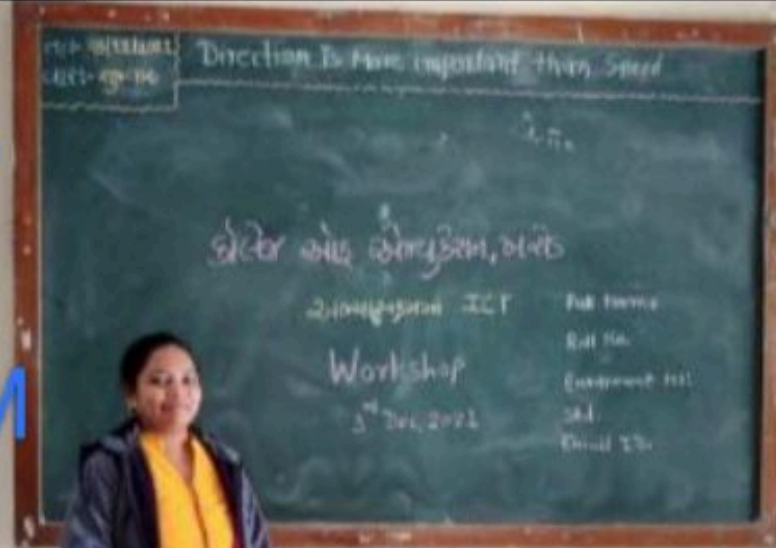 Direction Is More important than Speed
કોલેજ ઓફ એજ્યુકેશન,
અભ્યાસક્રમમાં ICT
Workshop
3rd Dec, 2021
Full Name
Roll No.
Enrolment No.
Std.
Email ID.
M